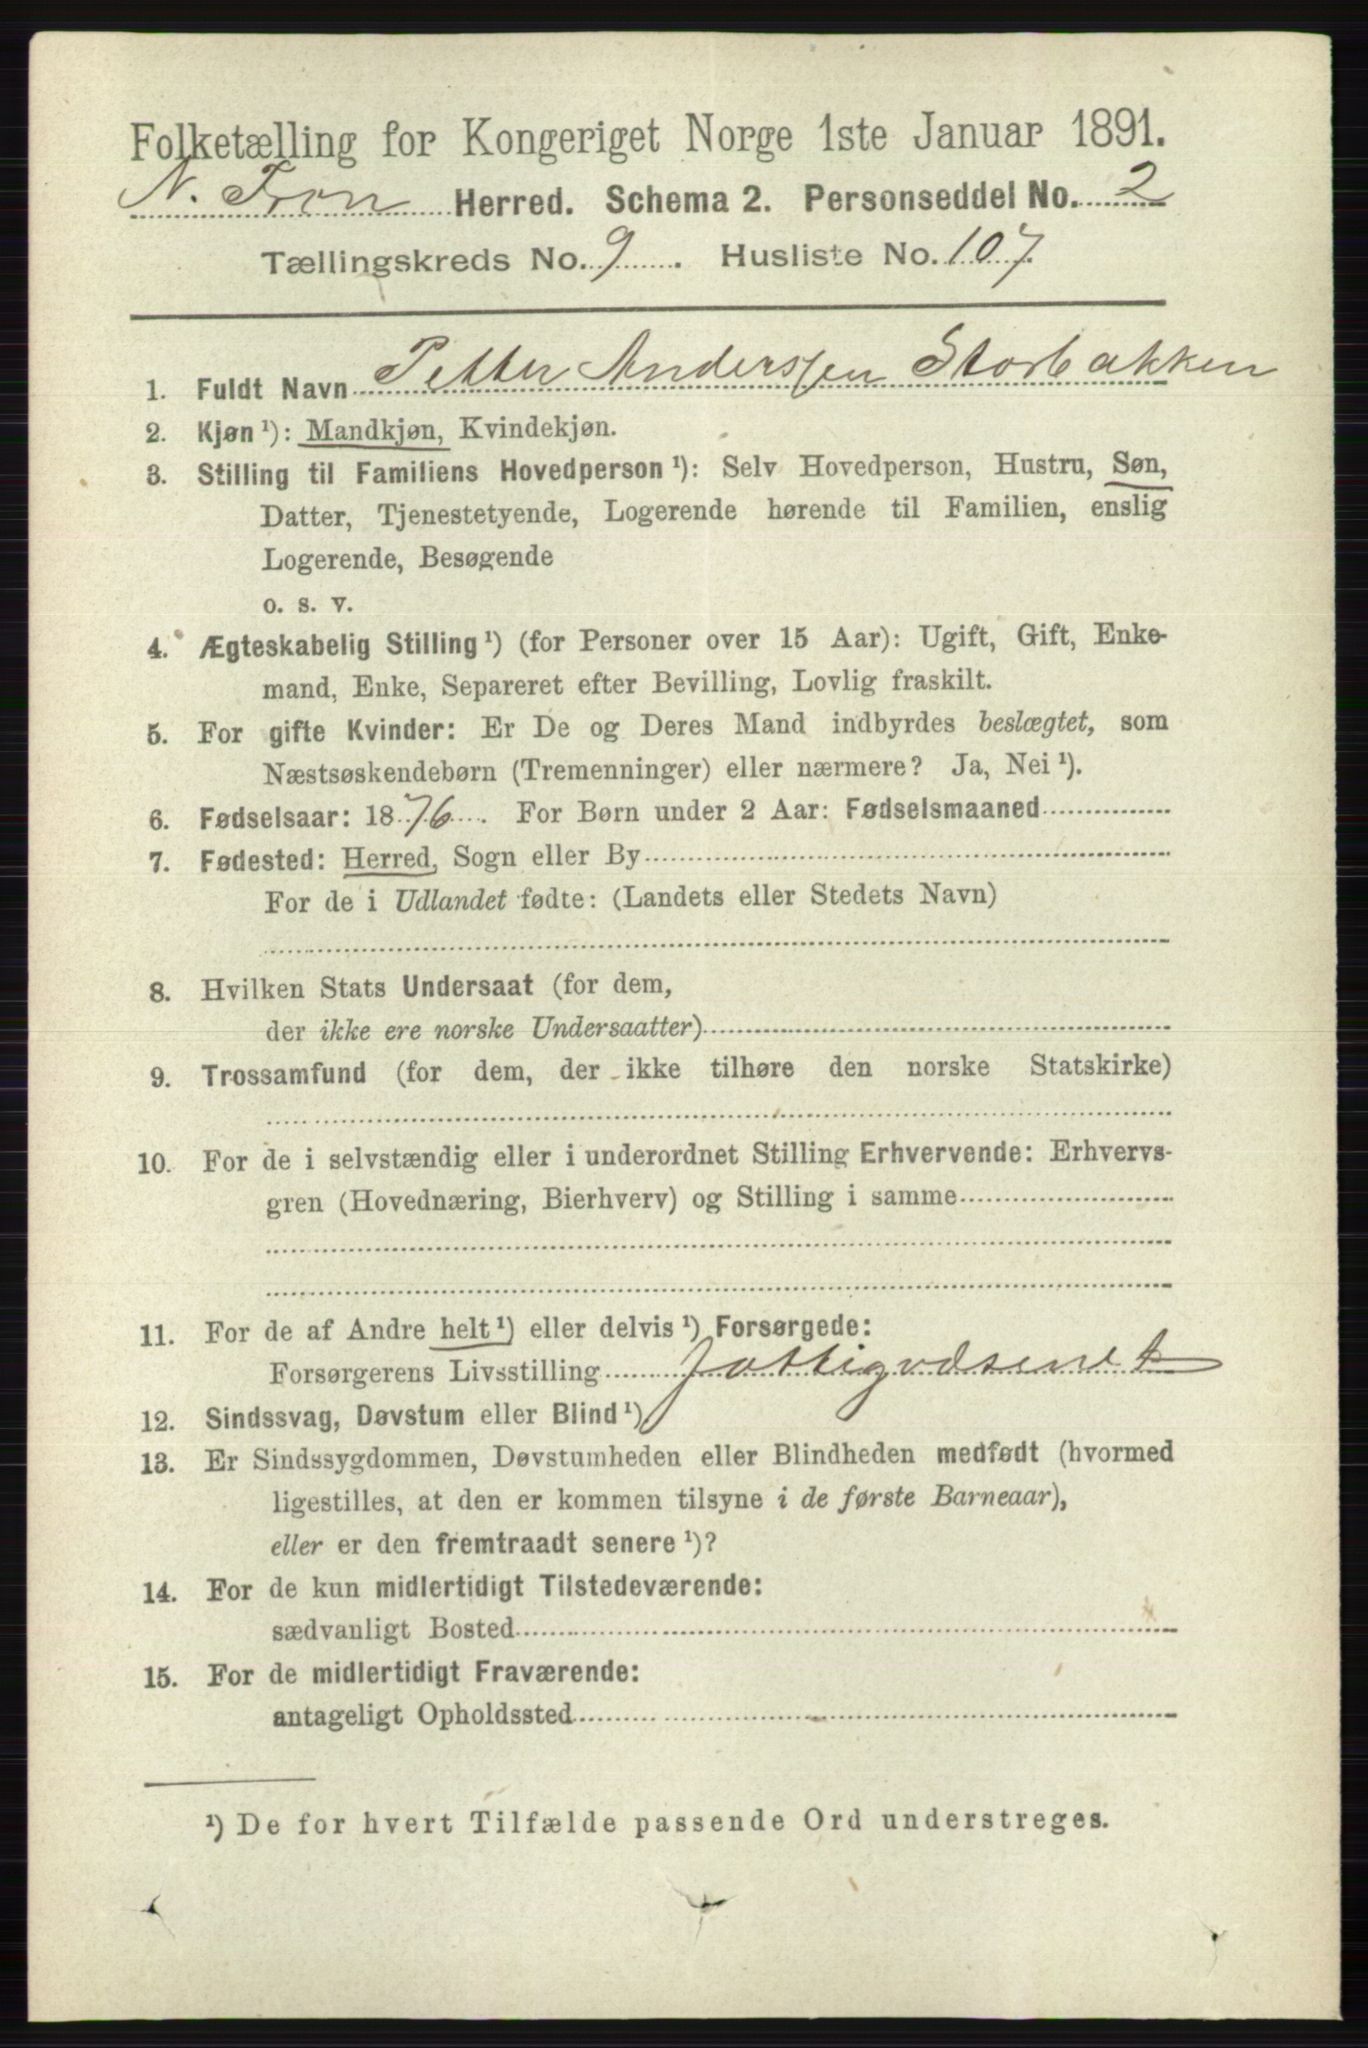 Folketælling for Kongeriget Norge 1ste Januar 1891.
N. Fron Herred. Schema 2. Personseddel No. 2
Tællingskreds No. 9. Husliste No. 107.
1. Fuldt Navn Petter Anderssen Storbakken
2. Kjøn ¹): Mandkjøn, Kvindekjøn.
3. Stilling til Familiens Hovedperson ¹): Selv Hovedperson, Hustru, Søn,
Datter, Tjenestetyende, Logerende hørende til Familien, enslig
Logerende, Besøgende
o. s. v.
4. Ægteskabelig Stilling ¹) (for Personer over 15 Aar): Ugift, Gift, Enke-
mand, Enke, Separeret efter Bevilling, Lovlig fraskilt.
5. For gifte Kvinder: Er De og Deres Mand indbyrdes beslægtet, som
Næstsøskendebørn (Tremenninger) eller nærmere? Ja, Nei ¹).
6. Fødselsaar: 1876. For Børn under 2 Aar: Fødselsmaaned
7. Fødested: Herred, Sogn eller By
For de i Udlandet fødte: (Landets eller Stedets Navn)
8. Hvilken Stats Undersaat (for dem,
der ikke ere norske Undersaatter)
9. Trossamfund (for dem, der ikke tilhøre den norske Statskirke)
10. For de i selvstændig eller i underordnet Stilling Erhvervende: Erhvervs-
gren (Hovednæring, Bierhverv) og Stilling i samme
11. For de af Andre helt ¹) eller delvis ¹) Forsørgede:
Forsørgerens Livsstilling
12. Sindssvag, Døvstum eller Blind ¹)
13. Er Sindssygdommen, Døvstumheden eller Blindheden medfødt (hvormed
ligestilles, at den er kommen tilsyne i de første Barneaar),
eller er den fremtraadt senere ¹)?
14. For de kun midlertidigt Tilstedeværende:
sædvanligt Bosted
15. For de midlertidigt Fraværende:
antageligt Opholdssted
¹) De for hvert Tilfælde passende Ord understreges.